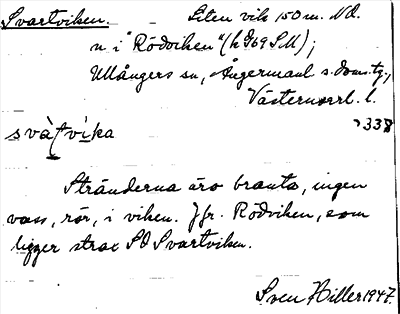 Svartviken. Liten vik 150 m. NO.
n. i "Rödviken" (h 969 SM);
Ullångers sn, Ångermanl. s. doms. tg.,
Västernorrl. l.
338
svàṭvìka
Stränderna äro branta, ingen
vass, rör, i viken. Jfr. Rödviken, som
ligger strax SO Svartviken.
Sven Hiller 1947.